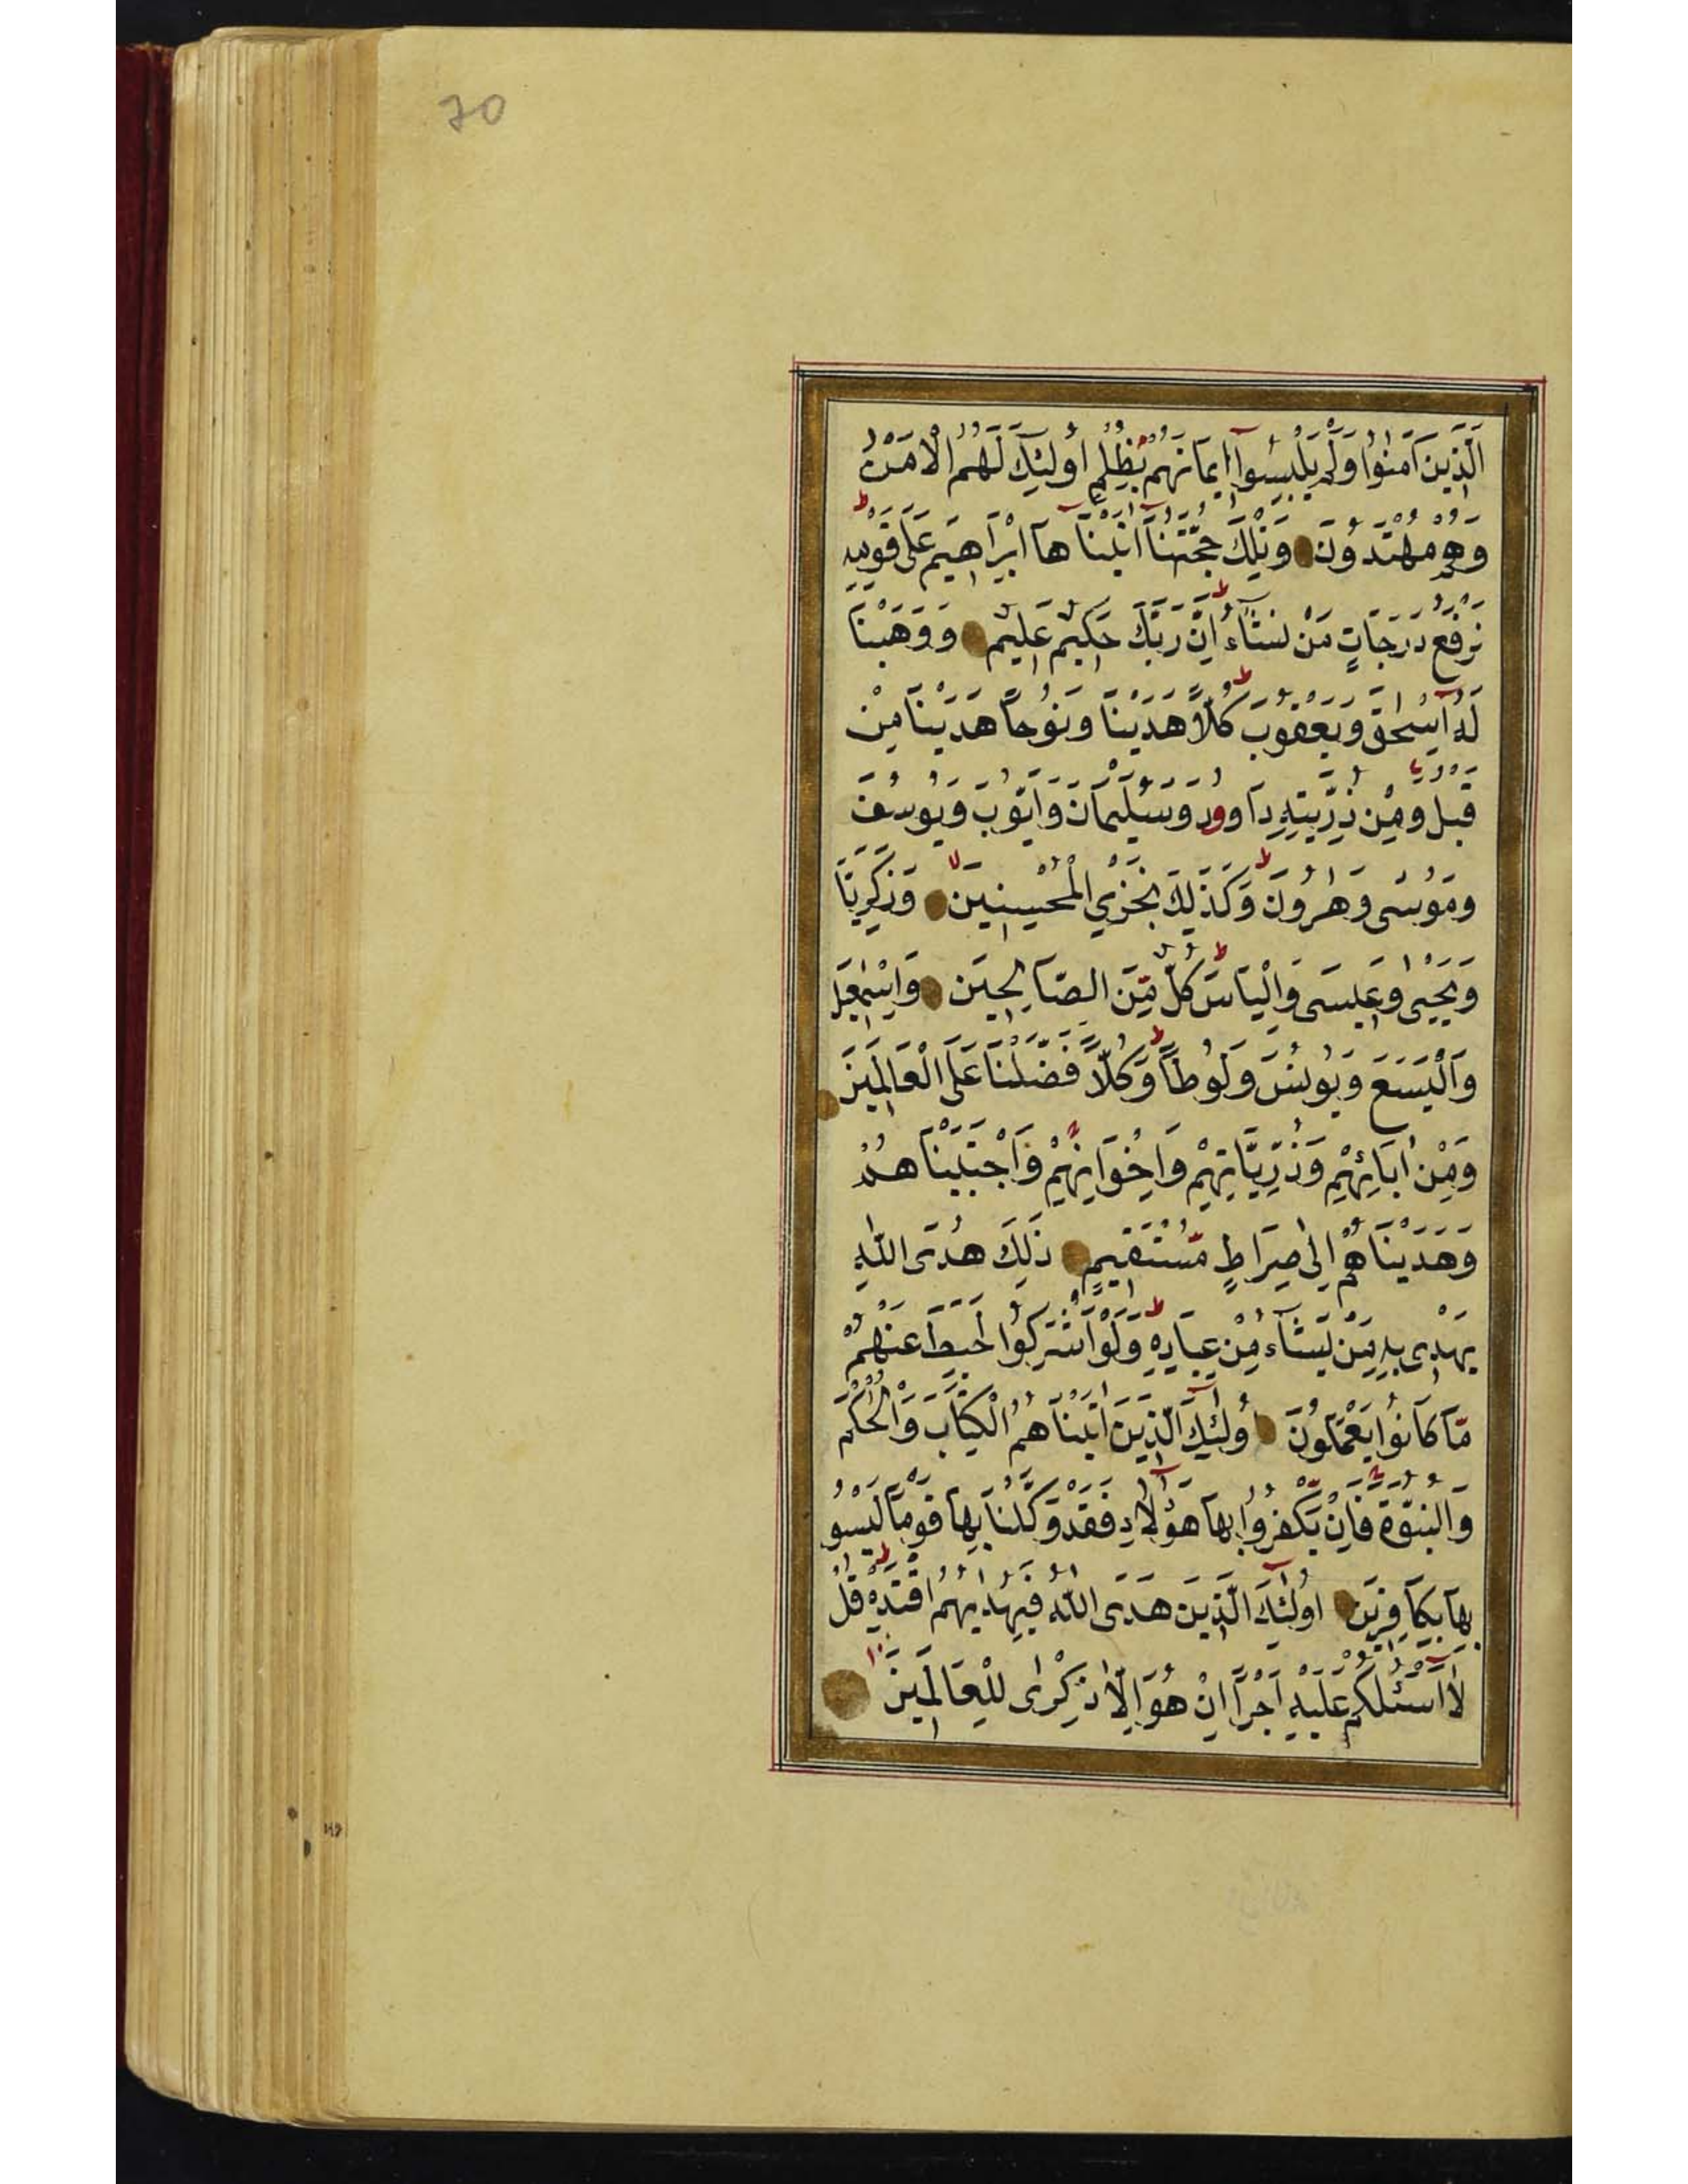 70
الَّذِينَ آمَنُوا وَلَمْ يَلْبِسُوا إِيمَانَهُمْ بِظُلْمٍ أُولَئِكَ لَهُمُ الْأَمْنُ
وَهُمْ مُهْتَدُونَ وَتِلْكَ حُجَّتُنَا آتَيْنَاهَا إِبْرَاهِيمَ عَلَى قَوْمِهِ
نَرْفَعُ دَرَجَاتٍ مَنْ نَشَاءُ إِنَّ رَبَّكَ حَكِيمٌ عَلِيمٌ وَوَهَبْنَا
لَهُ إِسْحٰقَ وَيَعْقُوبَ كُلًّا هَدَيْنَا وَنُوحًا هَدَيْنَا مِنْ
قَبْلُ وَمِنْ ذُرِّيَّتِهِ دَاوودَ وَسُلَيْمَانَ وَأَيُّوبَ وَيُوسُفَ
وَمُوسَى وَهٰرُونَ وَكَذَلِكَ نَجْزِي الْمُحْسِنِينَ وَزَكَرِيَّا
وَيَحْيٰى وَعِيسَى وَإِلْيَاسَ كُلٌّ مِّنَ الصَّالِحِينَ وَإِسْمٰعِيلَ
وَالْيَسَعَ وَيُونُسَ وَلُوطًا وَكُلًّا فَضَّلْنَا عَلَى الْعَالَمِينَ
وَمِنْ اٰبَائِهِمْ وَذُرِّيَّاتِهِمْ وَإِخْوَانِهِمْ وَاجْتَبَيْنَاهُمْ
وَهَدَيْنَاهُمْ إِلَى صِرَاطٍ مُّسْتَقِيمٍ ذَلِكَ هُدَى اللّٰهِ
يَهْدِي بِهِ مَنْ يَشَاءُ مِنْ عِبَادِهِ وَلَوْ أَشْرَكُوا لَحَبِطَ عَنْهُمْ
مَّا كَانُوا يَعْمَلُونَ أُولٰئِكَ الَّذِينَ اٰتَيْنَاهُمُ الْكِتَابَ وَالْحُكْمَ
وَالنُّبُوَّةَ فَإِنْ يَّكْفُرْ بِهَا هٰؤُلَاءِ فَقَدْ وَكَّلْنَا بِهَا قَوْمًا لَيْسُوا
بِهَا بِكَافِرِينَ أُولٰئِكَ الَّذِينَ هَدَى اللّٰهُ فَبِهُدٰيهُمُ اقْتَدِهْ قُلْ
لَا أَسْئَلُكُمْ عَلَيْهِ أَجْرًا إِنْ هُوَ إِلَّا ذِكْرٰى لِلْعَالَمِينَ